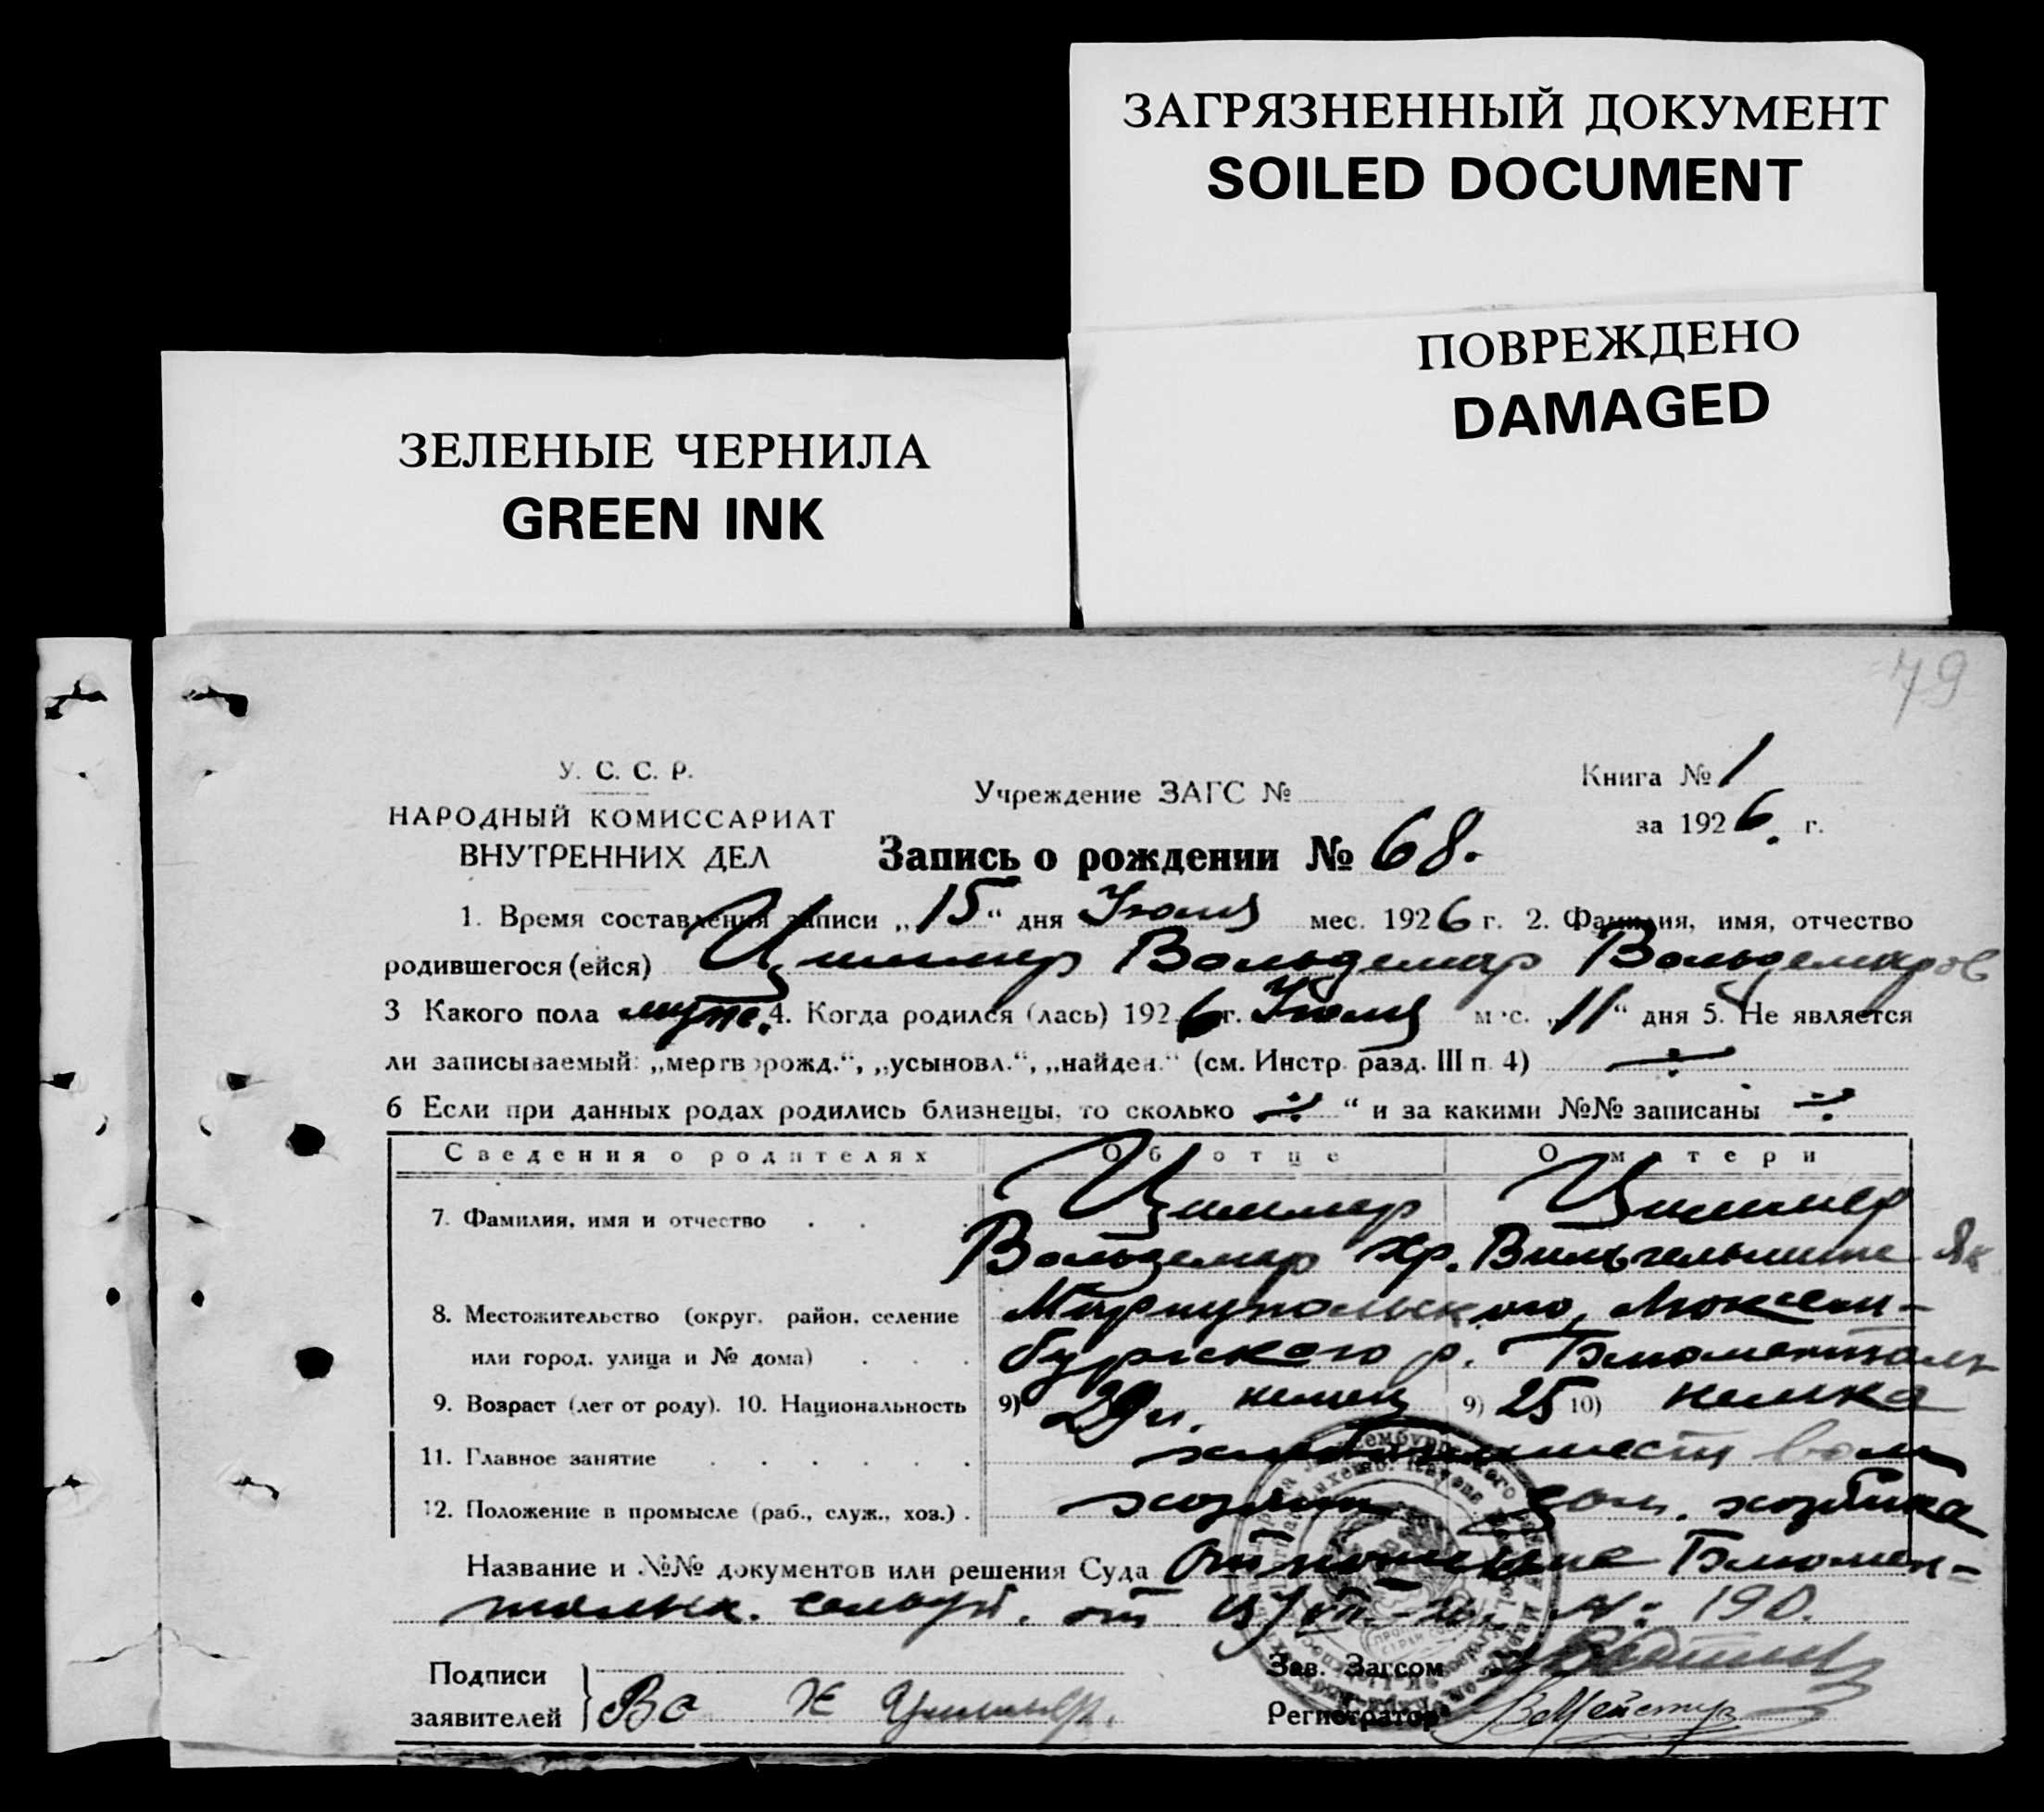 ЗАГРЯЗНЕННЫЙ ДОКУМЕНТ
SOILED DOCUMENT
ПОВРЕЖДЕНО
DAMAGED
ЗЕЛЕНЫЕ ЧЕРНИЛА
GREEN INK
79
У. С. С. Р.
НАРОДНЫЙ КОМИССАРИАТ
ВНУТРЕННИХ ДЕЛ
Учреждение ЗАГС №
Книга № 1
за 1926. г.
Запись о рождении № 68.
1. Время составления записи „15“ дня Июля мес. 1926 г. 2. Фамилия, имя, отчество
родившегося (ейся) Циммер Вольдемар Вольдемаров
3 Какого пола муж. 4. Когда родился (лась) 1926 г. Июля мес. „11“ дня 5. Не является
ли записываемый: „мертворожд.“, „усыновл.“, „найден.“ (см. Инстр. разд. III п. 4)
6 Если при данных родах родились близнецы, то сколько “ и за какими №№ записаны
Сведения о родителях Об отце О матери
7. Фамилия, имя и отчество Циммер Циммер
Вольдемар Хр. Вильгельмине Як
8. Местожительство (округ, район, селение Мариупольского, Люксем-
или город, улица и № дома) бургского р. Блюменталь
9. Возраст (лет от роду). 10. Национальность 9) 29 л. немец 9) 25 10) немка
11. Главное занятие
12. Положение в промысле (раб., служ., хоз.) хозяин дом. хозяйка
Название и №№ документов или решения Суда Отношение Блюмен-
тальск. сельсов. от № 190.
Подписи
заявителей } Во Х Циммер.
Зав. Загсом
Регистратор В Мейстер